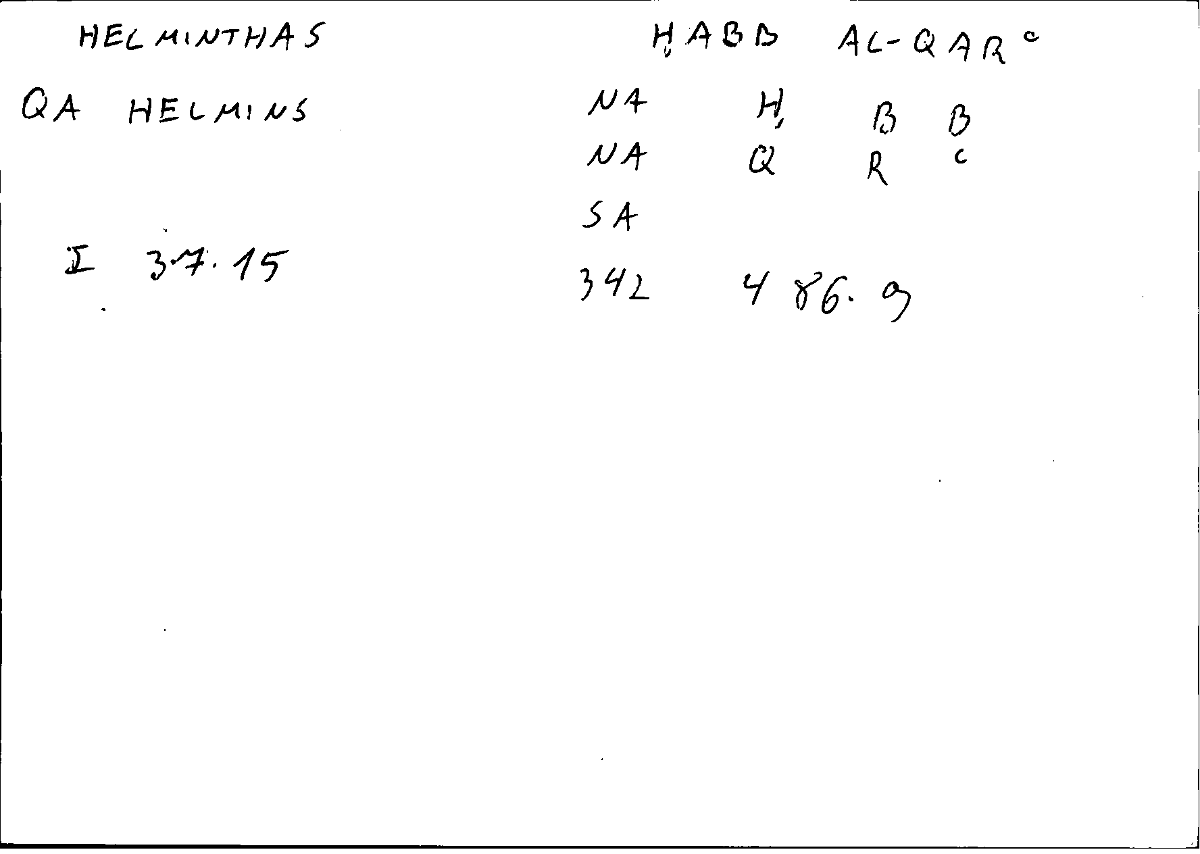 HELMINTHAS ḤABB AL-QARᶜ
QA HELMINS NA Ḥ B B
NA Q R ᶜ
SA
I 37.15 342 4 86.9